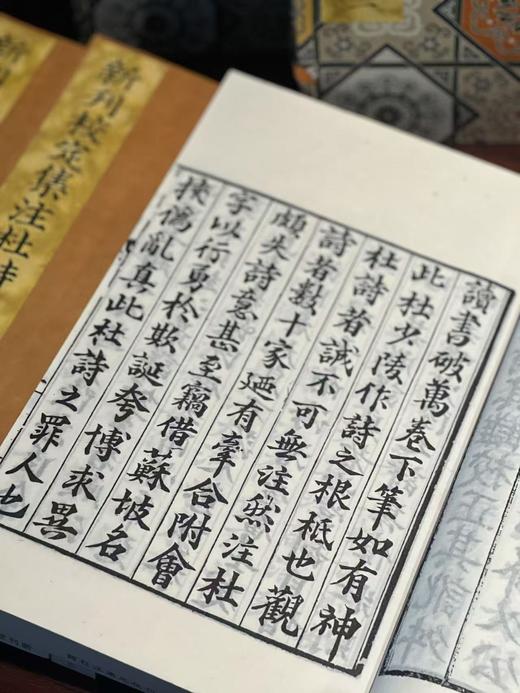 讀書破萬卷下筆如有神
此杜少陵作詩之根柢也觀
杜詩者誠不可無注然注杜
詩者數十家廼有牽合附會
頗失詩意甚至竊借蘇坡名
字以行勇於欺誕夸博求異
挾僞亂真此杜詩之罪人也
新刊校定集注杜詩
新刊